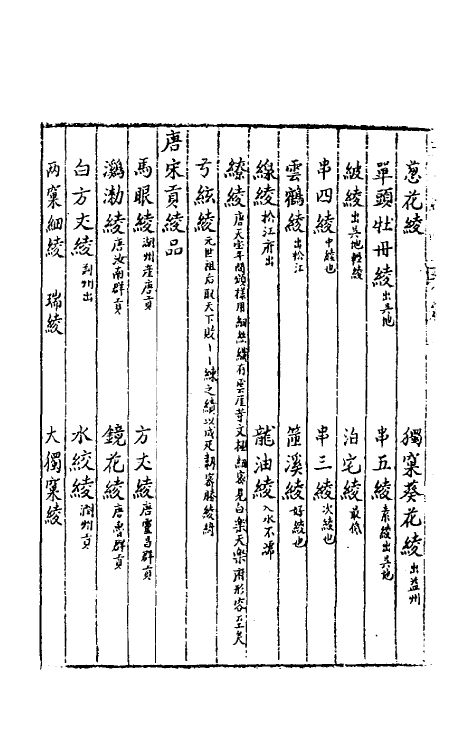 蔥花綾 獨窠葵花綾出益州
單頭牡丹綾出吳地 串五綾素綾出吳地
紴綾出吳地輕綾 泊宅綾最低
串四綾中綾也 串三綾次綾也
雲鶴綾出松江 篁溪綾好綾也
線綾松江府出 龍油綾入水不濡
繚綾唐天寶年間頒樣用細絲織有雲崖等文極細密見白樂天樂府形容工矣
弓絃綾元世祖后取天下敗弓絃練之績以成疋靭密勝綾綺
唐宋貢綾品
馬眼綾湖州產唐貢 方丈綾唐靈昌群貢
鸂濔綾唐汝南群貢 鏡花綾唐魯群貢
白方丈綾荊州出 水絞綾潤州貢
兩窠細綾 瑞綾 大獨窠綾